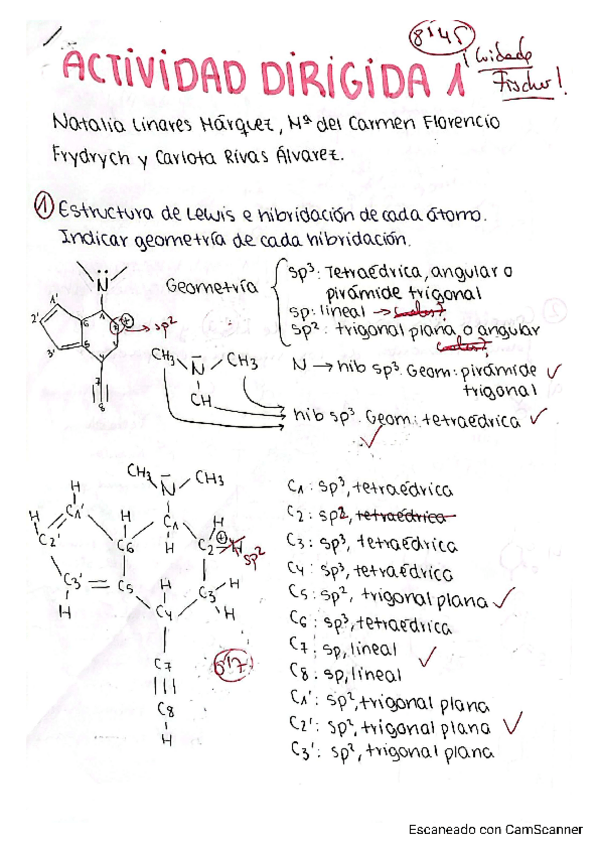 8'45
¡Cuidado
Fischer!
ACTIVIDAD DIRIGIDA 1
Natalia Linares Márquez, Mª del Carmen Florencio
Frydrych y Carlota Rivas Álvarez.
① Estructura de Lewis e hibridación de cada átomo.
Indicar geometría de cada hibridación.
N
1'
2'
3'
6
1
5
4
7
8
sp²
Geometría
sp³: Tetraédrica, angular o
pirámide trigonal
sp: lineal → cuales?
sp²: trigonal plana o angular
cuales?
CH₃ N CH₃
CH
N → hib sp³. Geom: pirámide
trigonal
hib sp³. Geom: tetraédrica
CH₃ N CH₃
H
C1'
H
C2'
C3'
H
H
C6
C5
C1
H
H
C2
H
sp²
C3
H
H
H
C4
C7
C8
H
0'17
C1: sp³, tetraédrica
C2: sp², tetraédrica
C3: sp³, tetraédrica
C4: sp³, tetraédrica
C5: sp², trigonal plana
C6: sp³, tetraédrica
C7: sp, lineal
C8: sp, lineal
C1': sp², trigonal plana
C2': sp², trigonal plana
C3': sp², trigonal plana
Escaneado con CamScanner